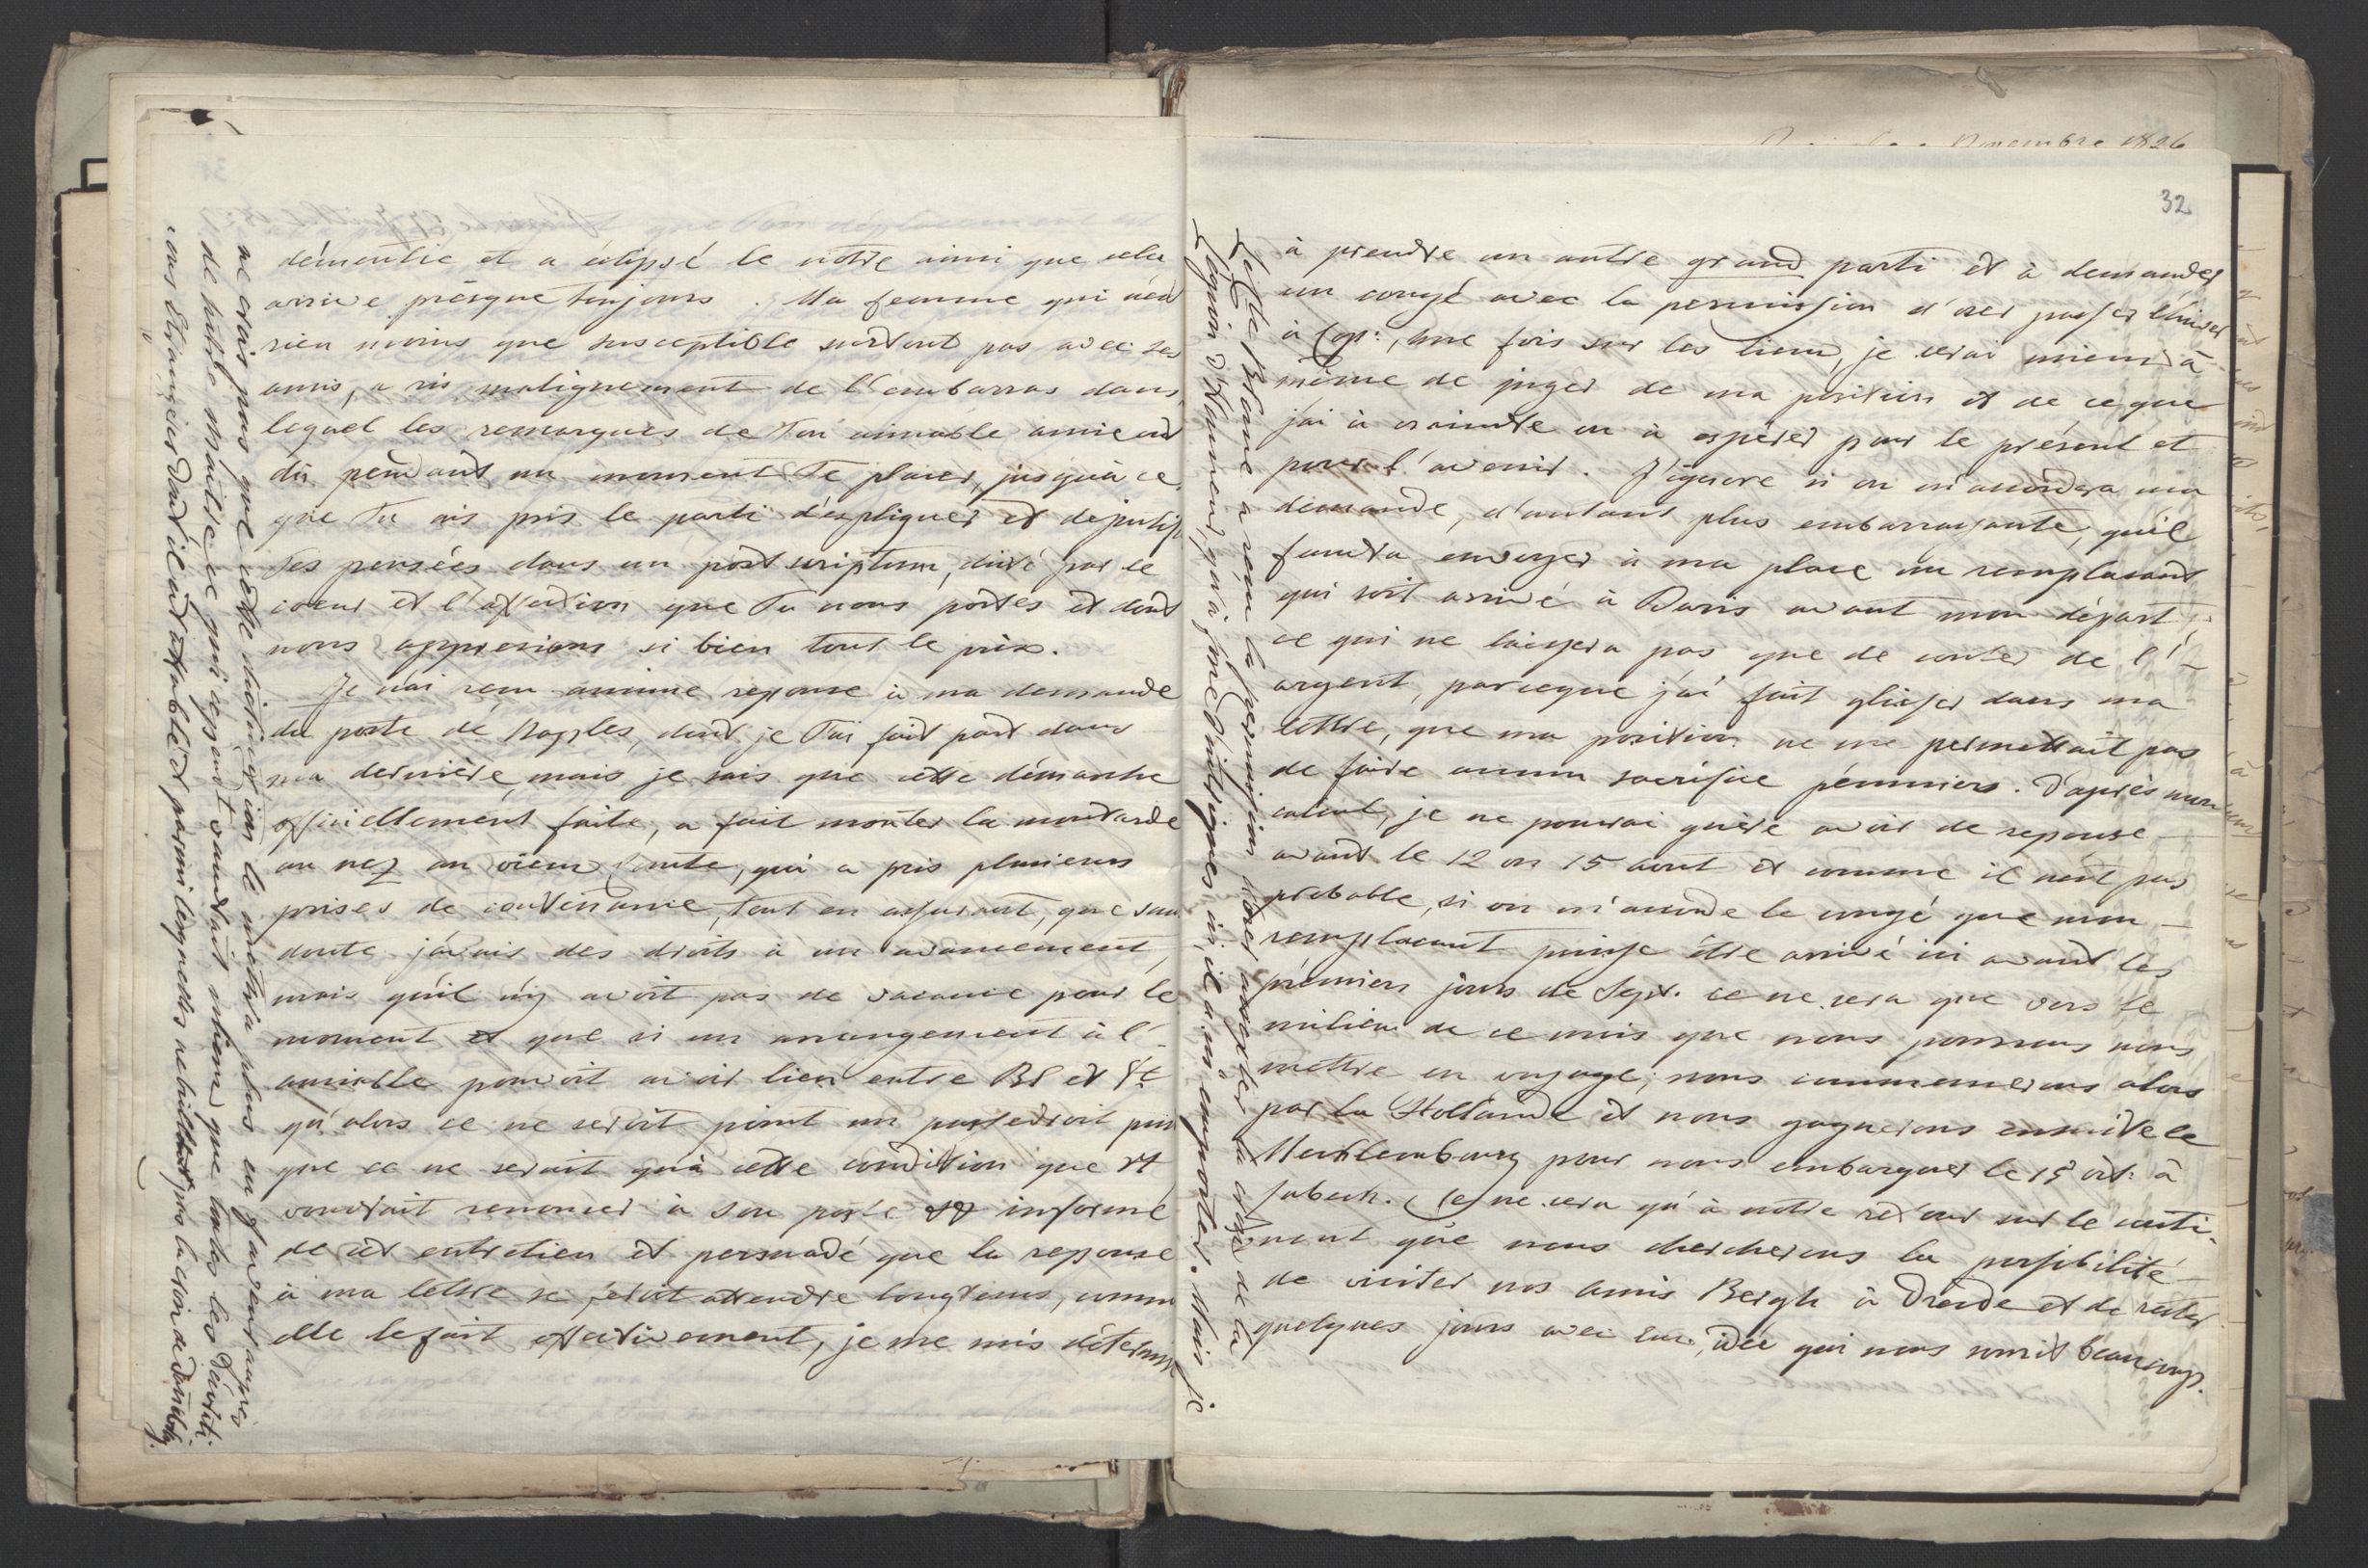 démentie et a éclipsé le notre ainsi que cela
arrive présque toujours. Ma femme qui n'est
rien moins que susceptible surtout pas avec ses
amis, a ris malignement de l'embarras dans
lequel les remarques de Ton aimable amie ont
dû pendant un moment Te placer, jusqu'à ce
que Tu ais pris le parti d'expliquer et de justif.
Tes pensées dans un post scriptum, dicté par le
coeur et l'affection que Tu nous portes et dont
nous apprecions si bien tout le prix.
Je n'ai reçu aucune reponse à ma demande
du poste de Naples, dont je T'ai fait part dans
ma dernière, mais je sais que cette démarche
officiellement faite, a fait monter la moutarde
au nez au vieux Comte, qui a pris plusieurs
prises de contenance, tout en assurant, que sans
doute j'avais des droits à un avancement,
mais qu'il n'y avoit pas de vacance pour le
moment et que si un arrangement à l'-
amiable pouvoit avoir lieu entre BS et St
qu'alors ce ne seroit point un passedroit puis
que ce ne serait qu'à cette condition que St
voudrait renoncer à son poste informé
de cet entretien et persuadé que la reponse
à ma lettre se feroit attendre longtems, comme
elle le fait effectivement, je me mis détermi
ne crois pas que cette distinction le mettra plus en faveur auprès
de notre maitre ce qui cependant vaudrait mieux que toutes les
cours Etrangères dont il est accablé et parmi lesquelles ne brille pas la croix de Danebrog.
32
à prendre un autre grand parti et à demander
un congé avec la permission d'oser passer l'hiver
à Cop:, une fois sur les lieux, je serai mieux à
même de juger de ma position et de ce que
j'ai à craindre ou à espérer pour le présent et
pour l'avenir. J'ignore si on m'accordera ma
demande, d'autant plus embarrassante, qu'il
faudra envoyer à ma place un remplacant
qui soit arrivé à Paris avant mon départ,
ce qui ne laissera pas que de couter de l'-
argent, parceque j'ai fait glisser dans ma
lettre, que ma position ne me permettait pas
de faire aucun sacrifice pécuniers. D'après mon
calcul, je ne pourrai guère avoir de reponse
avant le 12 ou 15 aout et comme il n'est pas
probable, si on m'accorde le congé que mon
remplacant puisse être arrivé ici avant les
prémiers jours de Sept. ce ne sera que vers le
milieu de ce mois que nous pourrons nous
mettre en voyage; nous commencerons alors
par la Hollande et nous gagnerons ensuite le
Mecklembourg pour nous embarquer le 15 oct: à
Lubeck. Ce ne sera qu'à notre retour sur le conti-
nent que nous chercherons la possibilité
de visiter nos amis Bergh à Dresde et de rester
quelques jours avec eux, idée qui nous sourit beaucoup.
Bosc a reçu la permission d'oser accepter la croix de la
Légion d'Honneur, qu'à force d'intrigues ici, il a su emporter. Mais je